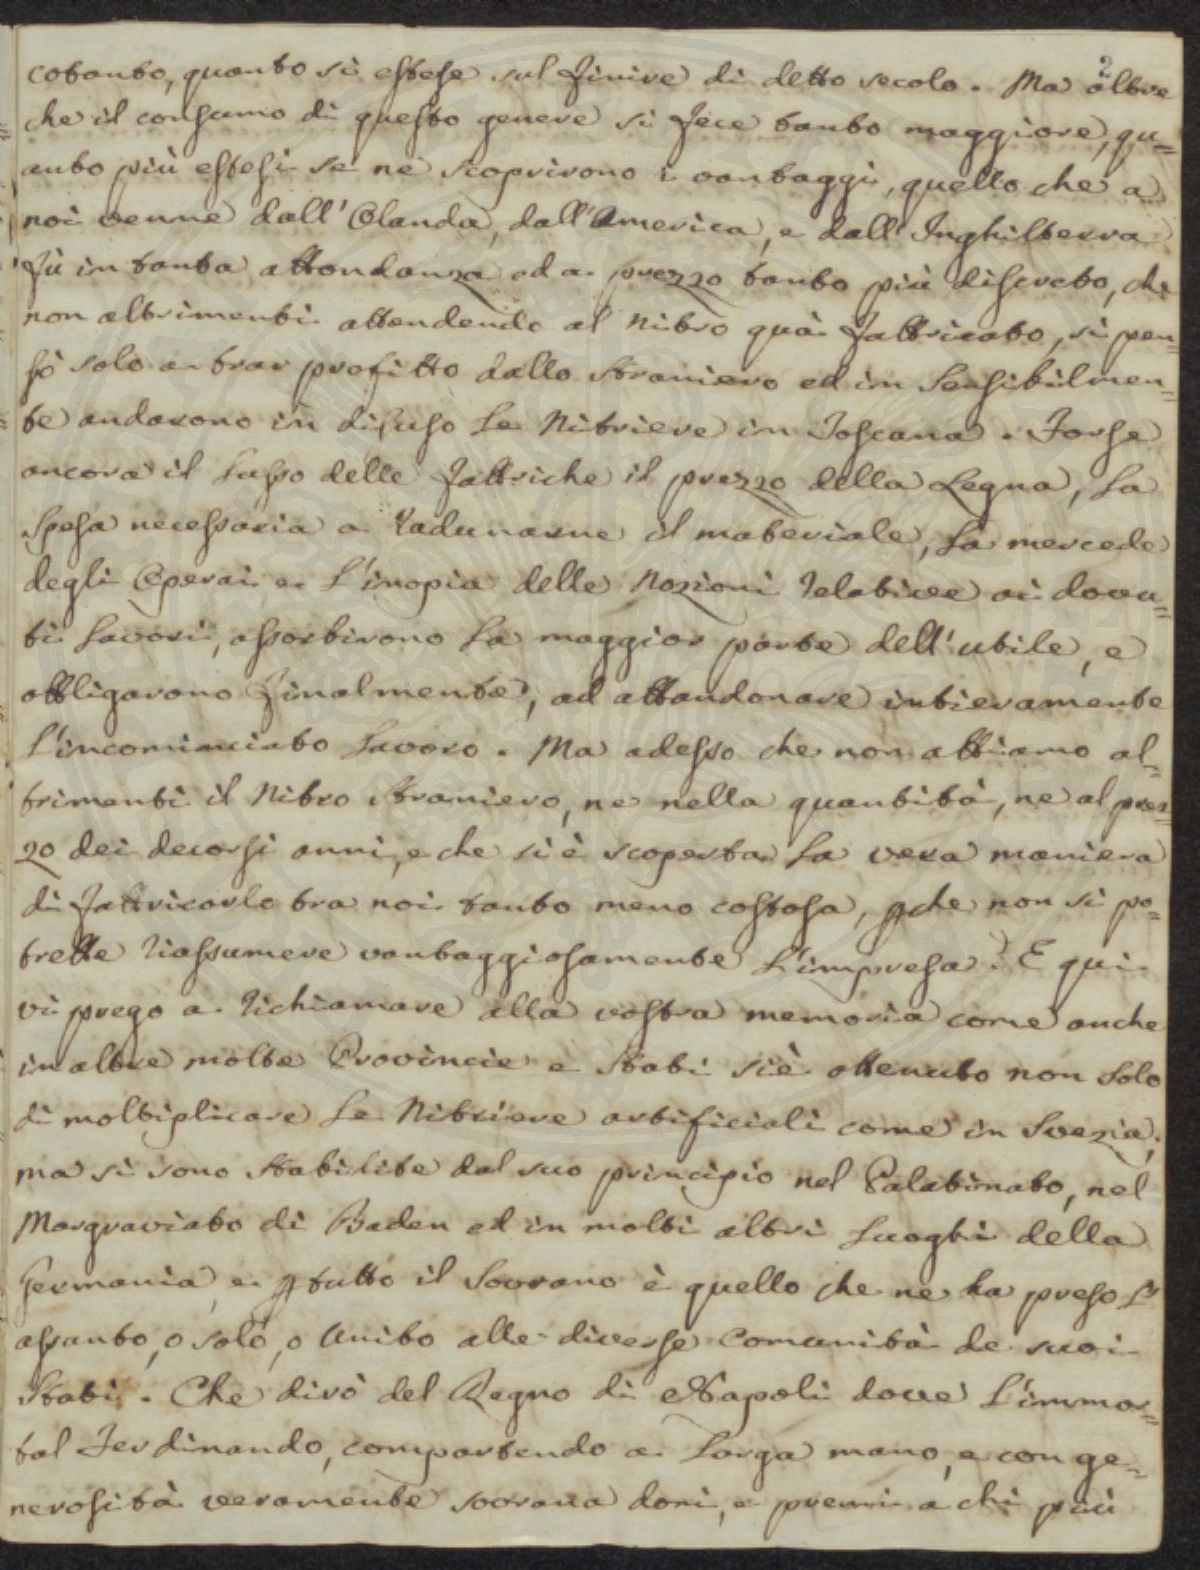 2
cotanto, quanto si estese sul finire di detto secolo. Ma oltre
che il consumo di questo genere si fece tanto maggiore, qu=
anto più estesi se ne scoprirono i vantaggi, quello che a
noi venne dall'Olanda, dall'America, e dall'Inghilterra
fù in tanta abbondanza ed a prezzo tanto più discreto, che
non altrimenti attendendo al Nitro quà fabbricato, si pen=
sò solo a trar profitto dallo straniero ed in sensibilmen=
te andarono in disuso le Nitriere in Toscana. Forse
ancora il lusso delle fabbriche il prezzo della Legna, la
spesa necessaria a radunarne il materiale, la mercede
degli Operai e l'inopia delle Nozioni relative ai dovu=
ti lavori, assorbirono la maggior parte dell'utile, e
obbligarono finalmente, ad abbandonare intieramente
l'incominciato lavoro. Ma adesso che non abbiamo al=
trimenti il Nitro straniero, ne nella quantità, ne al prez=
zo dei decorsi anni, e che si è scoperta la vera maniera
di fabbricarlo tra noi tanto meno costosa, pche non si po=
trebbe riassumere vantaggiosamente l'impresa? E qui
vi prego a richiamare alla vostra memoria come anche
in altre molte Provincie e Stati si è ottenuto non solo
di moltiplicare le Nitriere artificiali come in Svezia,
ma si sono stabilite dal suo principio nel Palatinato, nel
Margraviato di Baden ed in molti altri luoghi della
Germania, e ptutto il Sovrano è quello che ne ha preso l'
assunto, o solo, o unito alle diverse Comunità de suoi
Stati. Che dirò del Regno di Napoli dove l'immor=
tal Ferdinando, compartendo a larga mano, e con ge=
nerosità veramente sovrana doni, e premi a chi più